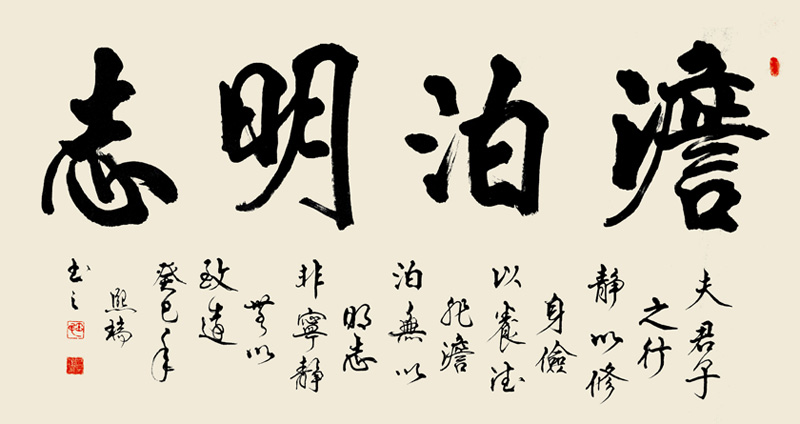 澹泊明志
夫君子
之行
静以修
身儉
以養德
非澹
泊無以
明志
非寧静
無以
致遠
癸巳年
熙
书之